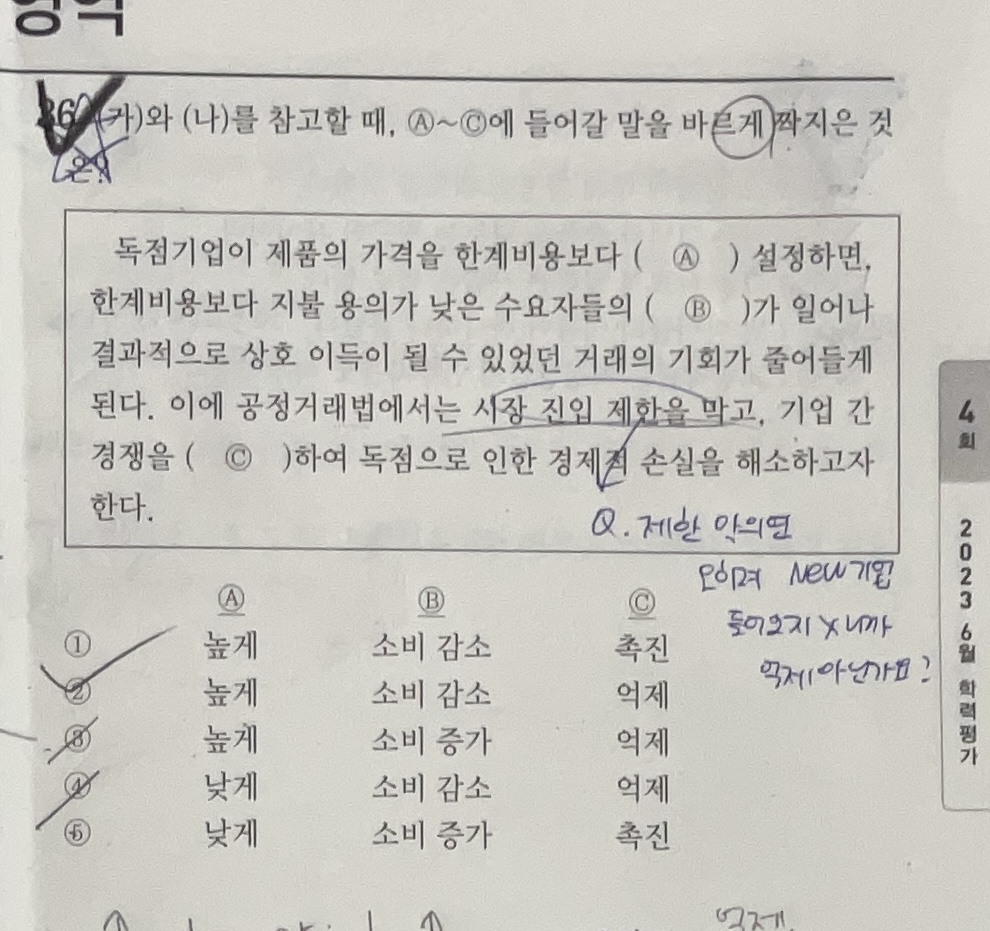 영역
36. (가)와 (나)를 참고할 때, Ⓐ~Ⓒ에 들어갈 말을 바르게 짝지은 것
은?
독점기업이 제품의 가격을 한계비용보다 ( Ⓐ ) 설정하면,
한계비용보다 지불 용의가 낮은 수요자들의 ( Ⓑ )가 일어나
결과적으로 상호 이득이 될 수 있었던 거래의 기회가 줄어들게
된다. 이에 공정거래법에서는 시장 진입 제한을 막고, 기업 간
경쟁을 ( Ⓒ )하여 독점으로 인한 경제적 손실을 해소하고자
한다.
Q. 제한 막의면
오히려 New 기업
들어오지 X니까
억제 아닌가요?
Ⓐ Ⓑ Ⓒ
① 높게 소비 감소 촉진
② 높게 소비 감소 억제
③ 높게 소비 증가 억제
④ 낮게 소비 감소 억제
⑤ 낮게 소비 증가 촉진
억제
4
회
2023 6월 학력평가